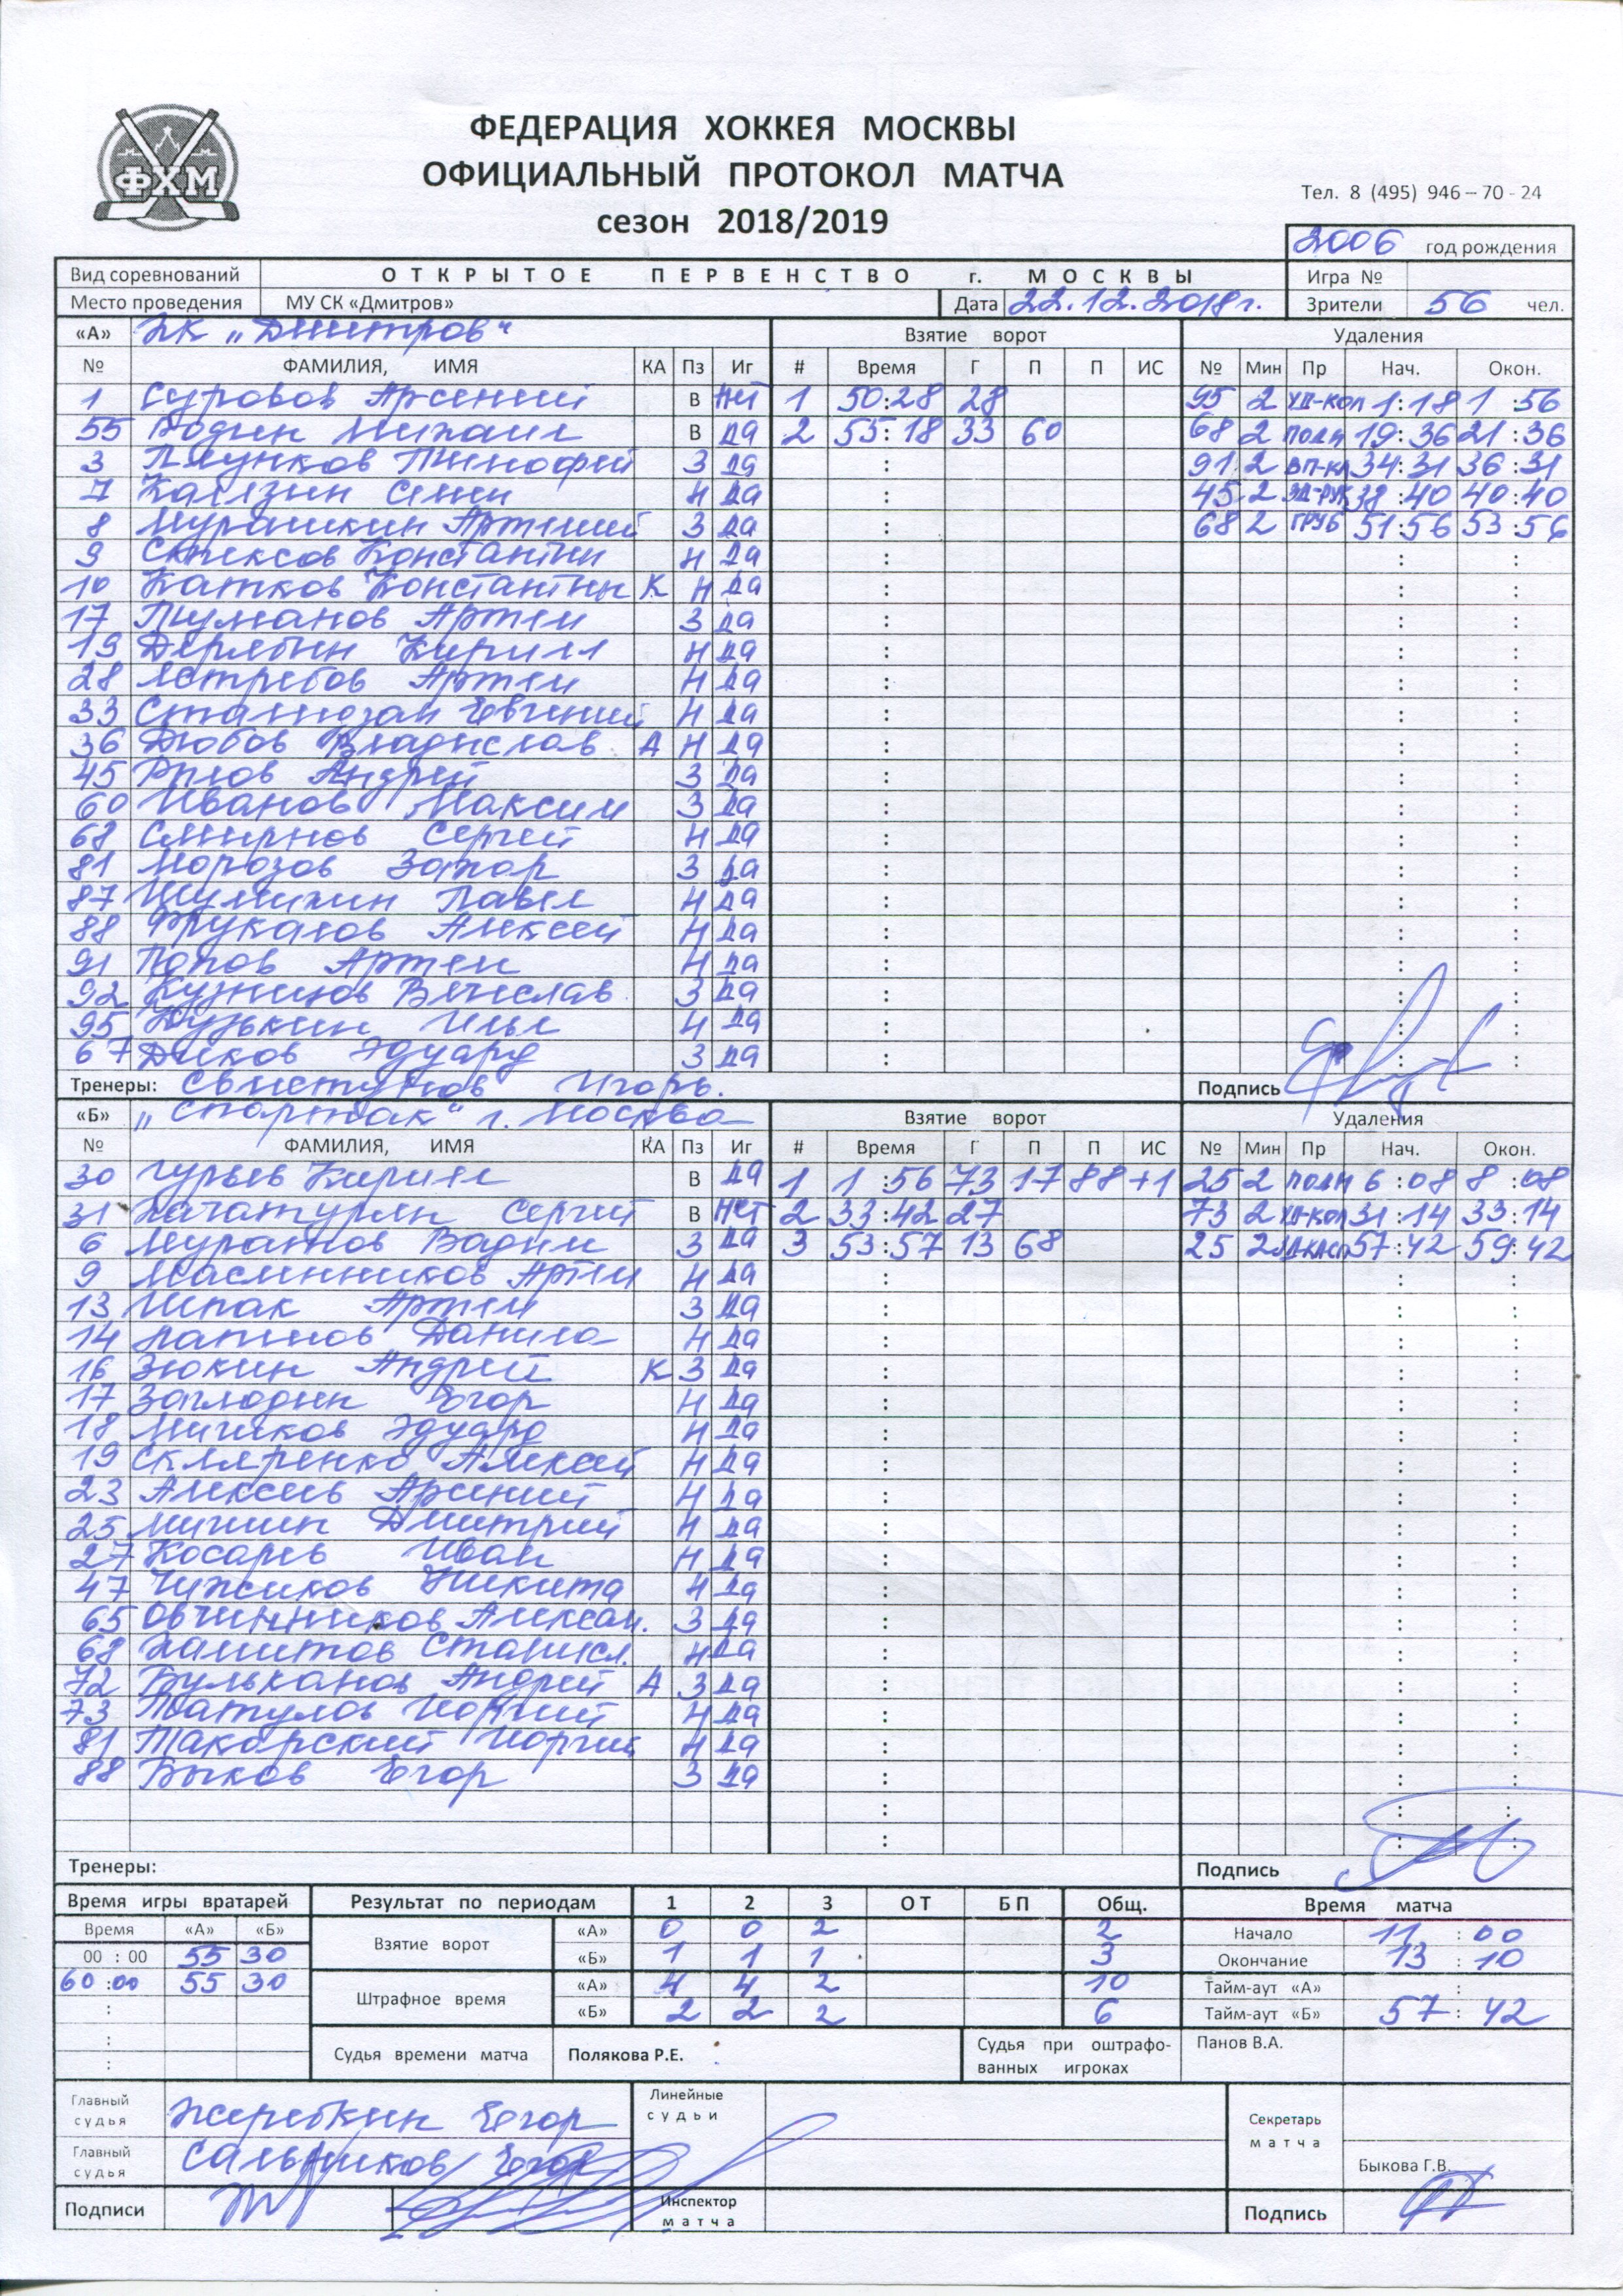 ФЕДЕРАЦИЯ ХОККЕЯ МОСКВЫ
ОФИЦИАЛЬНЫЙ ПРОТОКОЛ МАТЧА
сезон 2018/2019
ФХМ
Тел. 8 (495) 946 – 70 - 24
2006 год рождения
Вид соревнований ОТКРЫТОЕ ПЕРВЕНСТВО г. МОСКВЫ Игра №
Место проведения МУ СК «Дмитров» Дата 22.12.2018г. Зрители 56 чел.
«А» ХК "Дмитров" Взятие ворот Удаления
№ ФАМИЛИЯ, ИМЯ КА Пз Иг # Время Г П П ИС № Мин Пр Нач. Окон.
1 Суровов Арсений В НЕТ 1 50:28 28 95 2 1:18 1:56
55 Водин Михаил В да 2 55:18 33 60 68 2 ПОДН 19:36 21:36
3 Тимофей З да 91 2 34:31 36:31
7 Калязин Семен Н да 45 2 38:40 40:40
8 Мурашкин Артемий З да 68 2 ГРУБ 51:56 53:56
9 Константин Н да
10 Катков Константин К Н да
17 Туманов Артем З да
19 Дерябин Кирилл Н да
28 Ястребов Артем Н да
33 Евгений Н да
36 Дюбов Владислав А Н да
45 Андрей З да
60 Иванов Максим З да
68 Смирнов Сергей Н да
81 Морозов Захар З да
87 Шумихин Павел Н да
88 Фрукалов Алексей Н да
91 Попов Артем Н да
92 Кузнецов Вячеслав З да
95 Кузькин Илья Н да
67 Диков Эдуард З да
Тренеры: Свистунов Игорь. Подпись
«Б» "Спартак" г. Москва Взятие ворот Удаления
№ ФАМИЛИЯ, ИМЯ КА Пз Иг # Время Г П П ИС № Мин Пр Нач. Окон.
30 Гурьев Кирилл В да 1 1:56 73 17 88 +1 25 2 ПОДН 6:08 8:08
31 Хачатурян Сергей В НЕТ 2 33:42 27 73 2 31:14 33:14
6 Муратов Вадим З да 3 53:57 13 68 25 2 57:42 59:42
9 Масленников Артем Н да
13 Шпак Артем З да
14 Лаптев Данила Н да
16 Зюкин Андрей К З да
17 Загло­дин Егор Н да
18 Мишков Эдуард Н да
19 Скляренко Алексей Н да
23 Алексеев Арсений Н да
25 Мишин Дмитрий Н да
27 Косарев Иван Н да
47 Чижиков Никита Н да
65 Овчинников Алексан. З да
68 Хамитов Станисл. Н да
72 Бульканов Андрей А З да
73 Татулов Георгий Н да
81 Макарский Георгий Н да
88 Быков Егор З да
Тренеры: Подпись
Время игры вратарей Результат по периодам 1 2 3 ОТ БП Общ. Время матча
Время «А» «Б» Взятие ворот «А» 0 0 2 2 Начало 11:00
00 : 00 55 30 «Б» 1 1 1 3 Окончание 13:10
60:00 55 30 Штрафное время «А» 4 4 2 10 Тайм-аут «А» :
«Б» 2 2 2 6 Тайм-аут «Б» 57:42
Судья времени матча Полякова Р.Е. Судья при оштрафо-ванных игроках Панов В.А.
Главный судья Жеребкин Егор Линейные судьи Секретарь матча
Главный судья Сальников Егор Быкова Г.В.
Подписи Инспектор матча Подпись